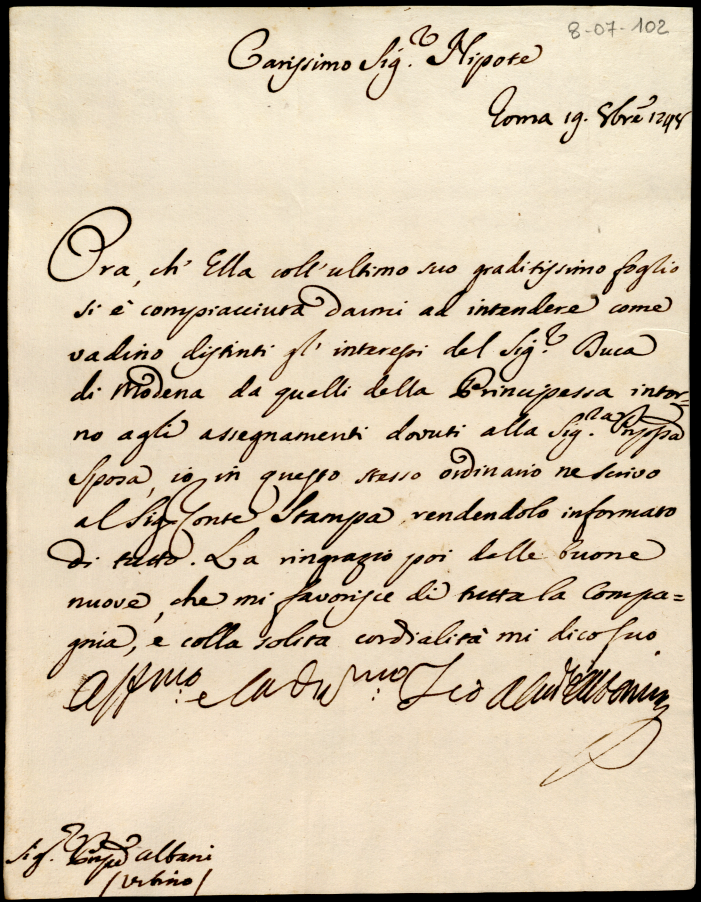 8-07-102
Carissimo Sig.r Nipote
Roma 19. 8bre 1748
Ora, ch' Ella coll'ultimo suo graditissimo foglio
si è compiacciuta darmi ad intendere come
vadino distinti gl' interessi del Sig.r Duca
di Modena da quelli della Principessa intor=
no agli assegnamenti dovuti alla Sig.ra Prin.ssa
Sposa, io in questo stesso ordinario ne scrivo
al Sig. Conte Stampa, rendendolo informato
di tutto. La ringrazio poi delle buone
nuove, che mi favorisce di tutta la Compa=
gnia, e colla solita cordialità mi dico suo
Aff.mo e
Sig.r Albani
/Urbino/